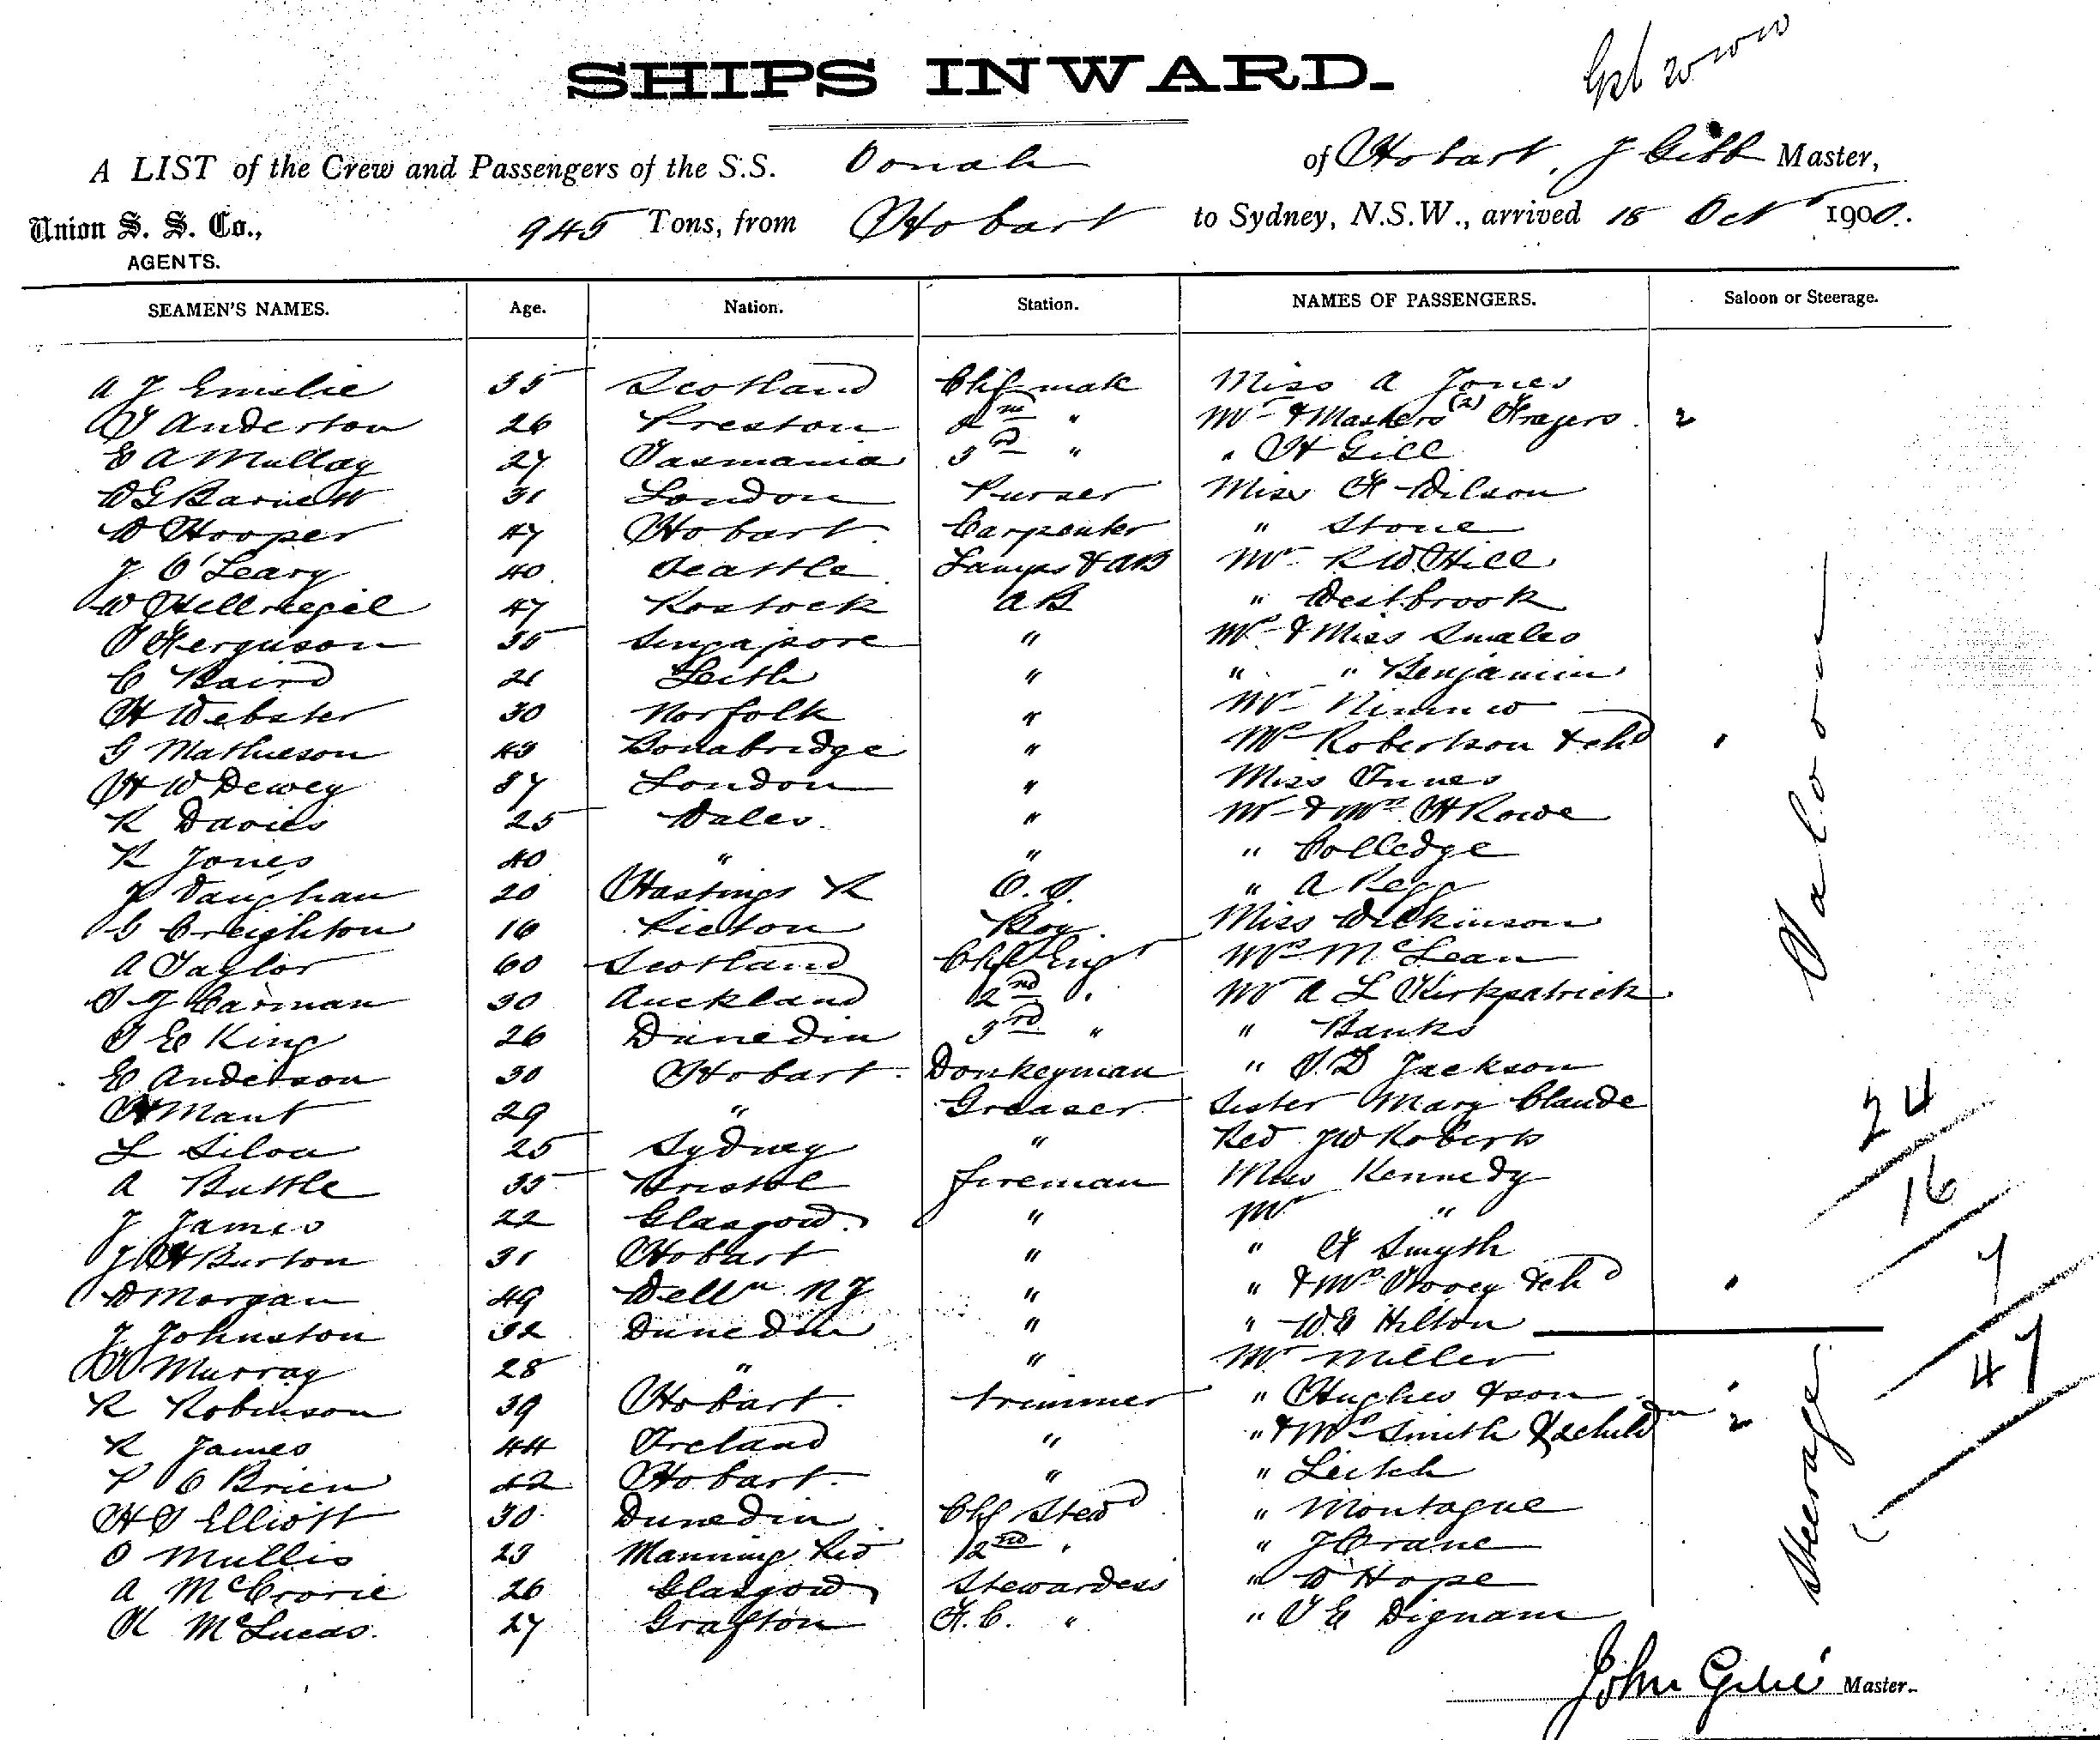 SHIPS INWARD.
A LIST of the Crew and Passengers of the S.S. Oonah of Hobart, J Gibb Master,
Union S. S. Co., 945 Tons, from Hobart to Sydney, N.S.W., arrived 18 Oct 1900.
AGENTS.
SEAMEN'S NAMES. Age. Nation. Station. NAMES OF PASSENGERS. Saloon or Steerage.
A J Emslie 35 Scotland Chf mate Miss A Jones
Anderton 26 Preston 2nd " Mr & Masters (2) Frazers 2
E A Mullay 27 Tasmania 3rd " " H Gill
W G Barnett 31 London Purser Miss F Wilson
W Hooper 47 Hobart Carpenter " Stone
J O'Leary 40 Seattle Lamps & AB Mr R W Hill
W Hellriegel 47 Rostock AB " Westbrook
Ferguson 35 Singapore " Mr & Miss Smales
C Baird 21 Leith " " " Benjamin
H Webster 30 Norfolk " Mr Nimmo
G Mathieson 43 Bonabridge " Mrs Robertson & chd 1
H W Dewey 37 London " Miss Innes
R Davies 25 Wales " Mr & Mrs H Rowe
R Jones 40 " " " Colledge
J Vaughan 20 Hastings R O.S. " A Pegg
G Creighton 16 Picton Boy Miss Wilkinson
A Taylor 60 Scotland Chf Engr Mrs McLean
S J Carman 30 Auckland 2nd " Mr A L Kirkpatrick
S E King 26 Dunedin 3rd " " Banks
E Anderson 30 Hobart Donkeyman " S.D Jackson
H Mant 29 " Greaser Sister Mary Claude
L Silva 25 Sydney " Rev JW Roberts
A Buttle 35 Bristol fireman Miss Kennedy
J James 22 Glasgow " Mr "
J H Burton 31 Hobart " " F Smyth
W Morgan 49 Welln NZ " " & Mrs Vovey & chd 1
J Johnston 32 Dunedin " " W.E Hilton
W Murray 28 " " Mr Miller
R Robinson 39 Hobart trimmer " Hughes & son 1
R James 44 Ireland " " & Mrs Smith & 2 children 2
P O Brien 42 Hobart " " Leitch
H S Elliott 30 Dunedin Chf Stewd " Montague
O Mullis 23 Manning Riv 2nd " " J Crane
A McCrorie 26 Glasgow Stewardess " W Hope
K McLucas 27 Grafton F.C. " " V E Dignam
Saloon
Steerage
24
16
7
47
John Gibb Master.